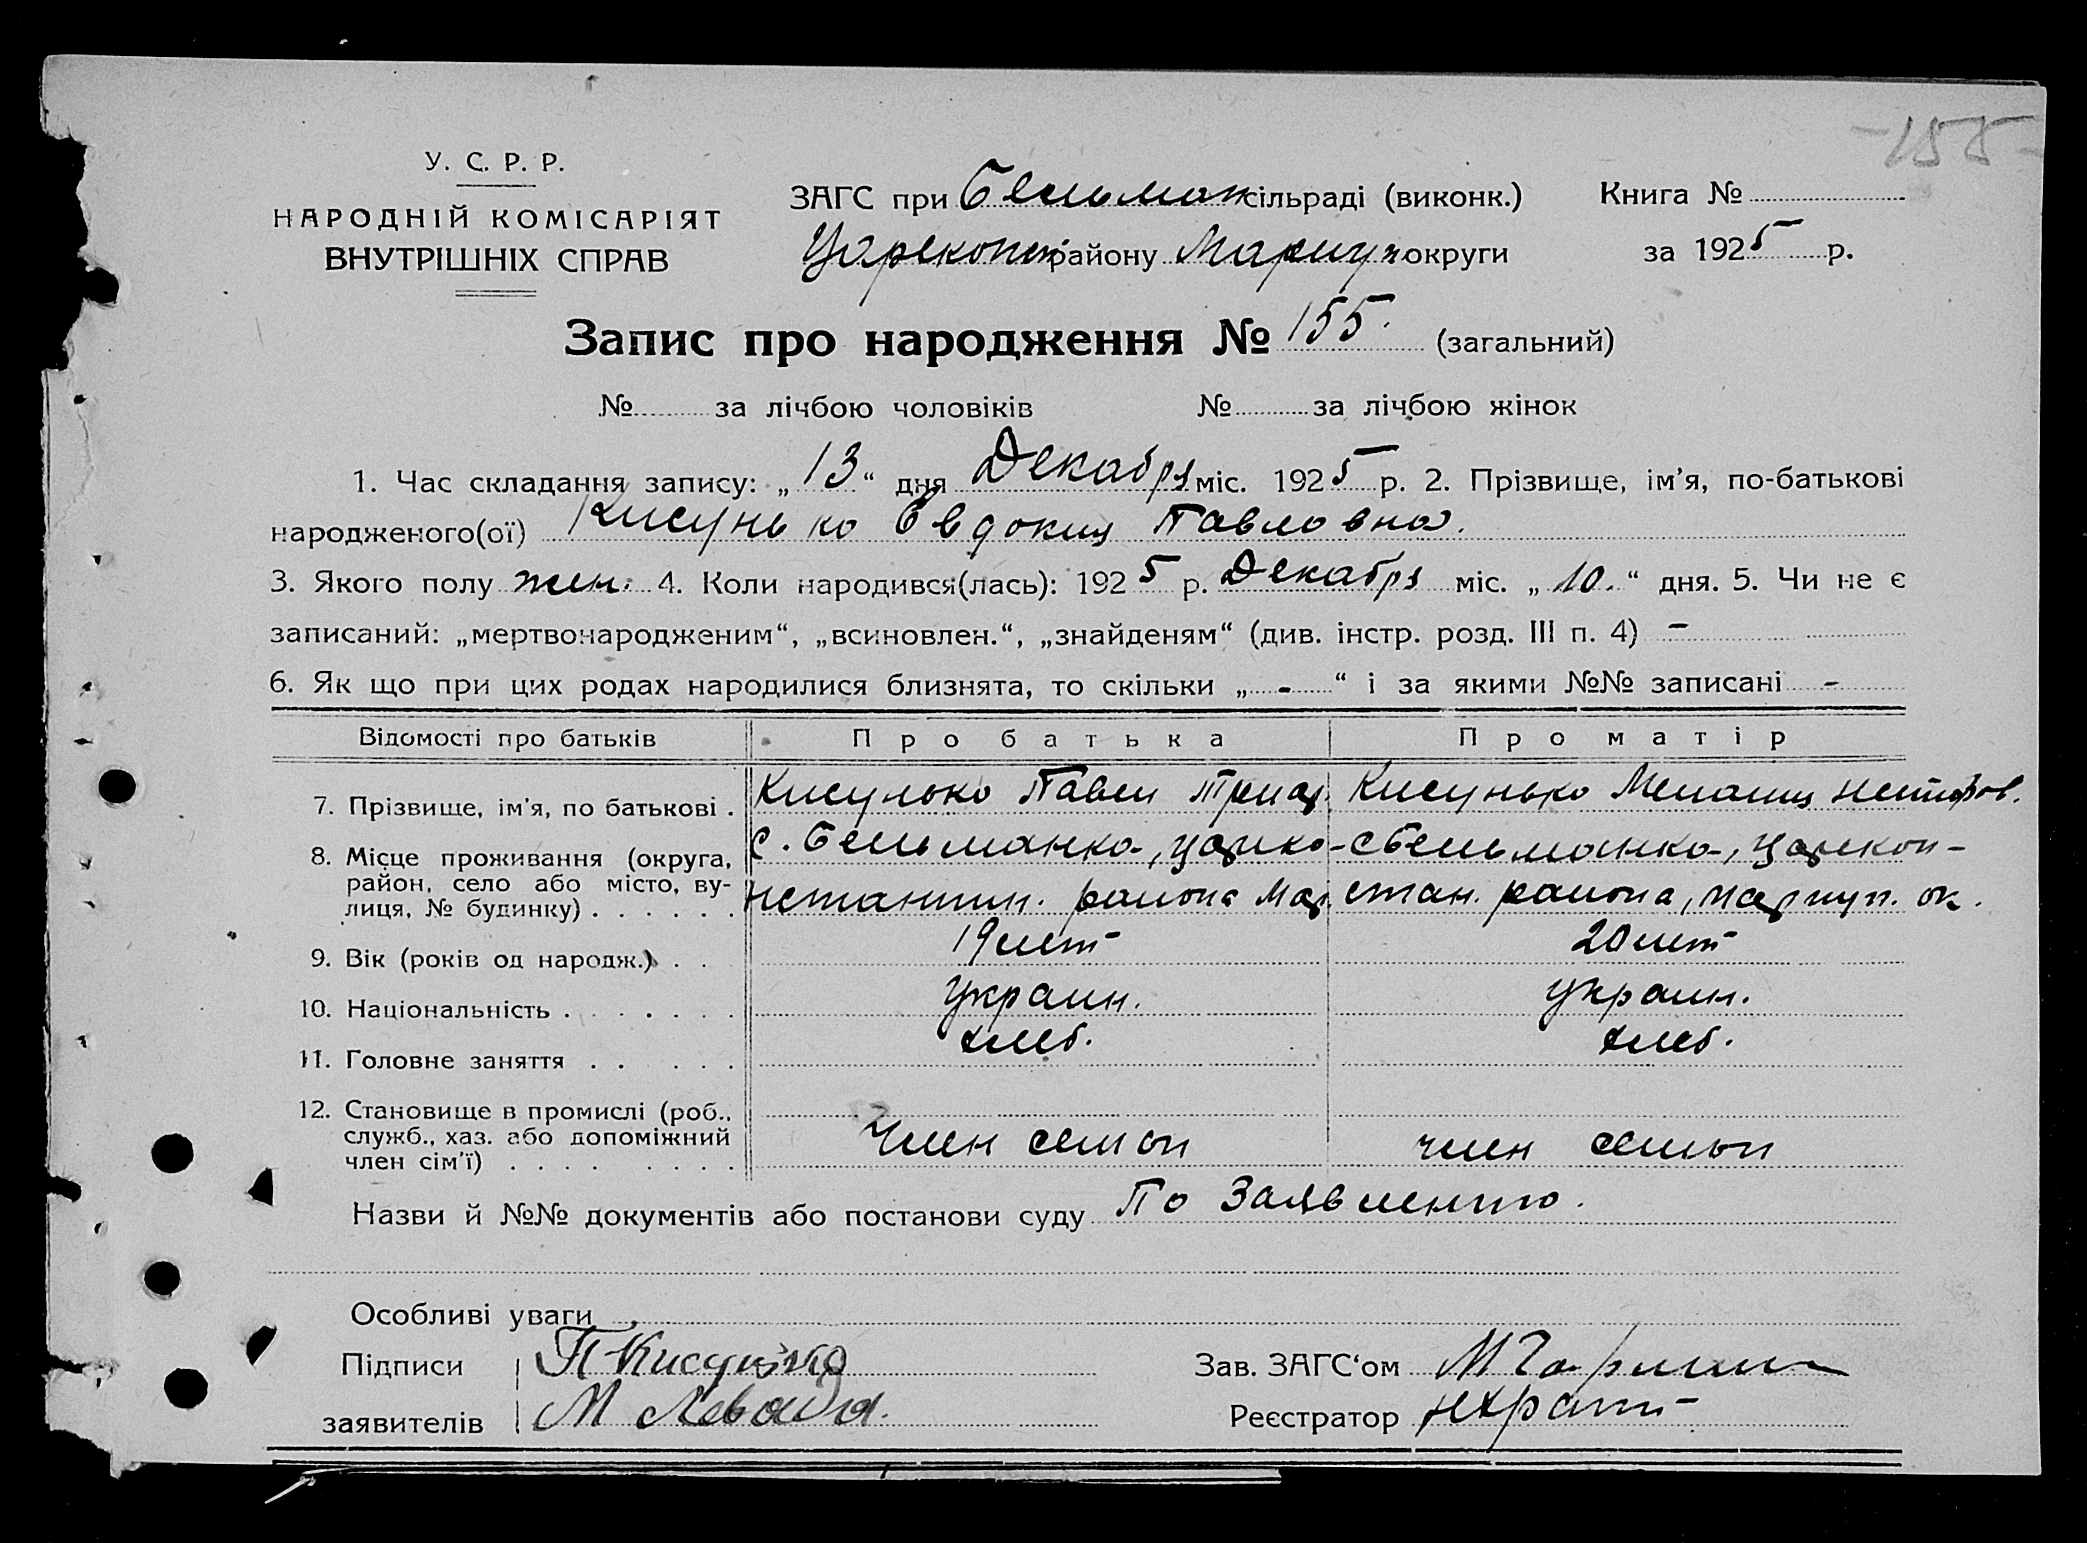 155
У. С. Р. Р.
НАРОДНІЙ КОМІСАРІЯТ
ВНУТРІШНІХ СПРАВ
ЗАГС при Бельман сільраді (виконк.) Книга №
Цареконст району Мариуп округи за 1925 р.
Запис про народження № 155. (загальний)
№ за лічбою чоловіків № за лічбою жінок
1. Час складання запису: „13“ дня Декабря міс. 1925 р. 2. Прізвище, ім'я, по-батькові
народженого(ої) Кисунько Евдокия Павловна.
3. Якого полу жен. 4. Коли народився(лась): 1925 р. Декабря міс. „10.“ дня. 5. Чи не є
записаний: „мертвонародженим“, „всиновлен.“, „знайденям“ (див. інстр. розд. III п. 4) -
6. Як що при цих родах народилися близнята, то скільки „-“ і за якими №№ записані -
Відомості про батьків Про батька Про матір
7. Прізвище, ім'я, по батькові . Кисунько Павел Кисунько Мелания Нестеров.
8. Місце проживання (округа, с. Бельманка, царико- с Бельманка, царекон-
район, село або місто, ву- нстантин. района Мар. стан. района, Мариуп. ок.
лиця, № будинку)
9. Вік (років од народж.) 19 лет 20 лет
10. Національність украин. украин.
11. Головне заняття хлеб. хлеб.
12. Становище в промислі (роб.,
служб., хаз. або допоміжний член семьи член семьи
член сім'ї)
Назви й №№ документів або постанови суду По Заявлению.
Особливі уваги
Підписи П Кисунько Зав. ЗАГС'ом
заявителів М Левада. Реєстратор